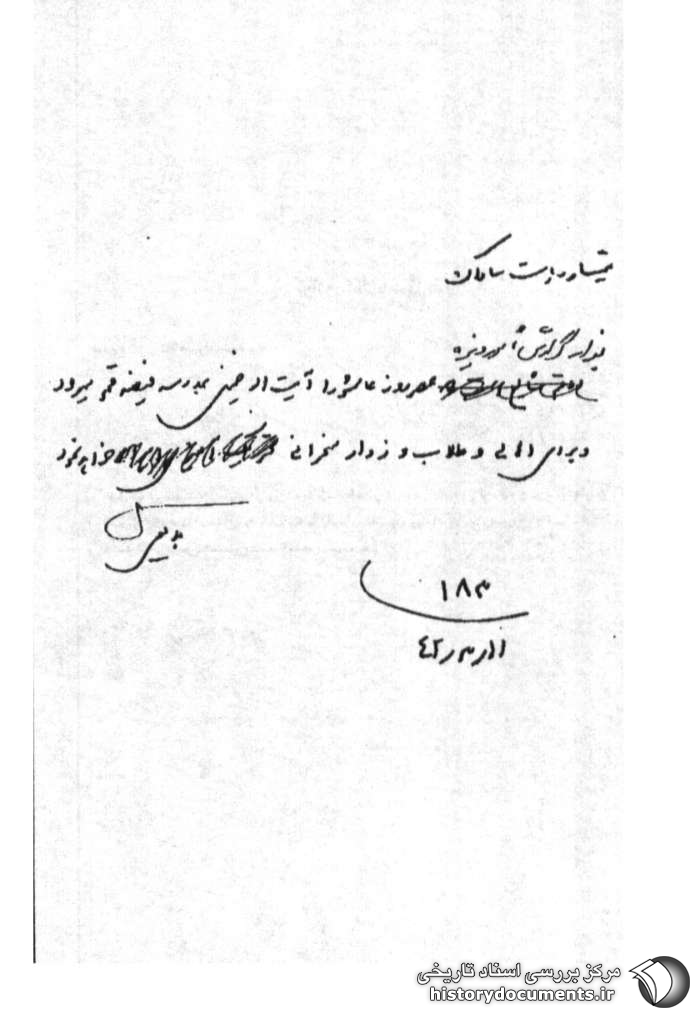 تیمسار ریاست ساواک
بقرار گزارش مامور ویژه
عصر روز عاشورا آیت اله خمینی بمدرسه فیضیه قم میرود
و برای اهالی و طلاب و زوار سخنرانی خواهد نمود
بدیعی
۱۸۳
۴۲٫۳٫۱۱
مرکز بررسی اسناد تاریخی
historydocuments.ir